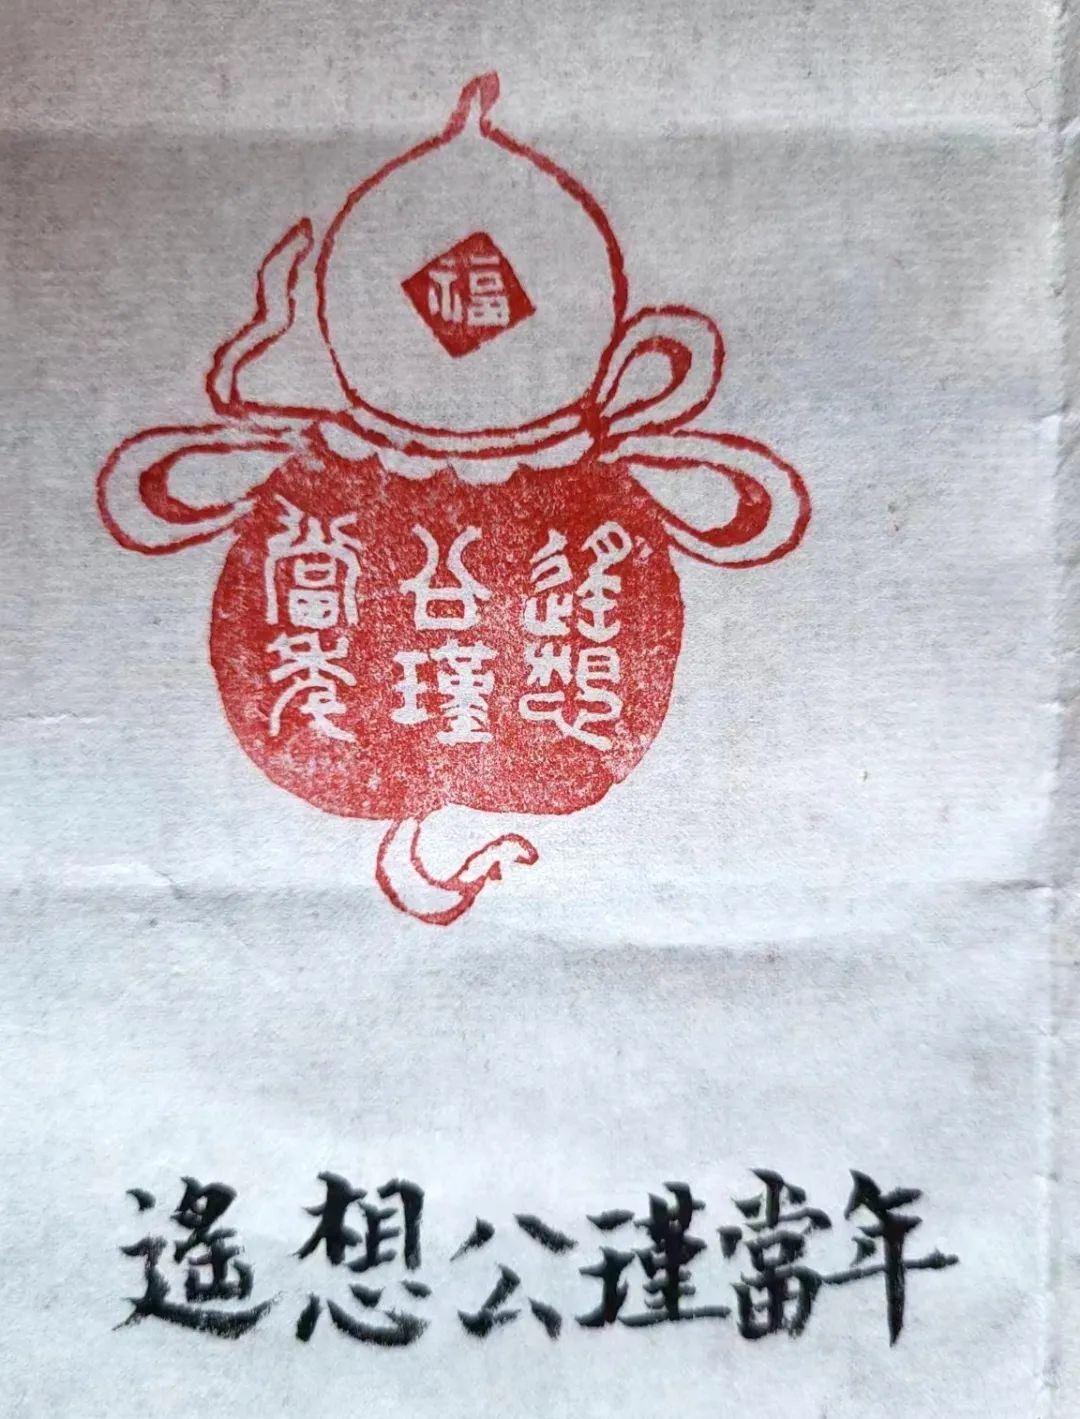 福
遥想
公瑾
當年
遙想公瑾當年